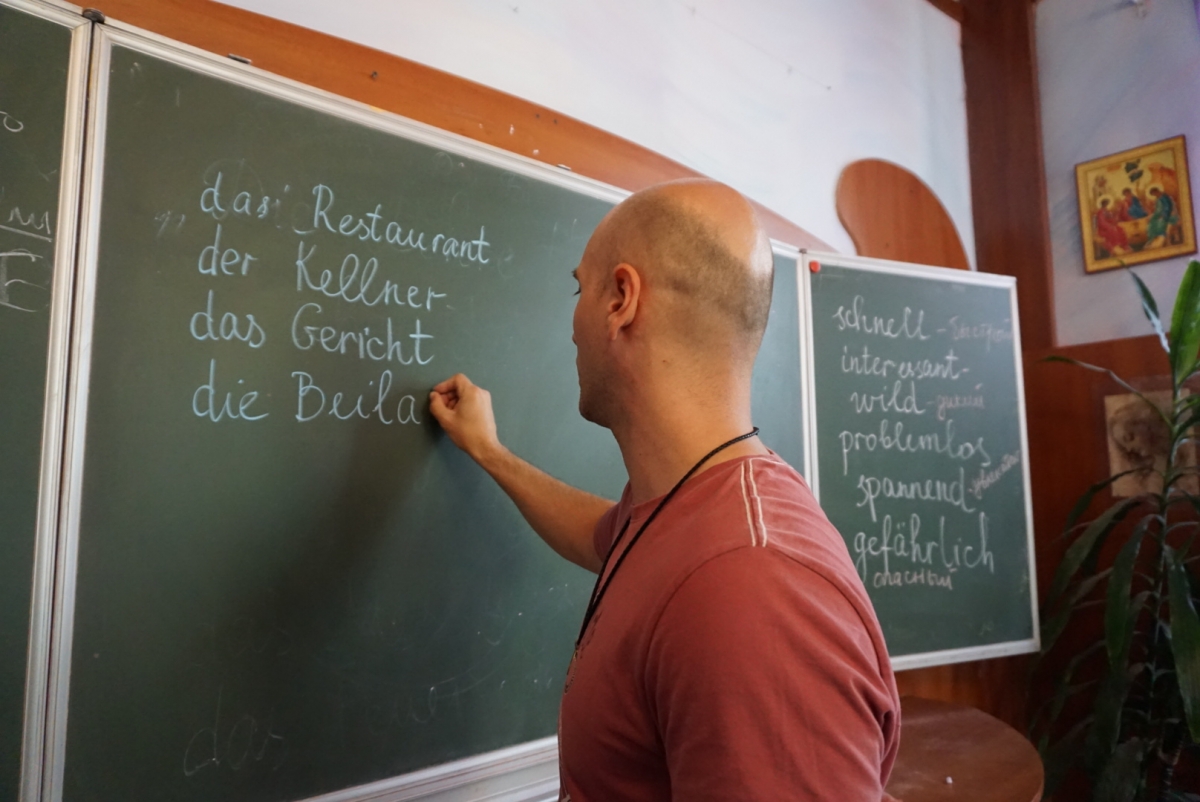 das Restaurant
der Kellner
das Gericht
die Beila
schnell -
interessant-
wild - дикий
problemlos
spannend -
gefährlich
опасный